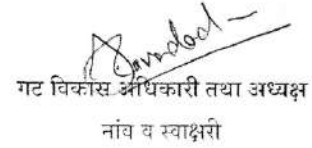 गट विकास अधिकारी तथा अध्यक्ष
नांव व स्वाक्षरी